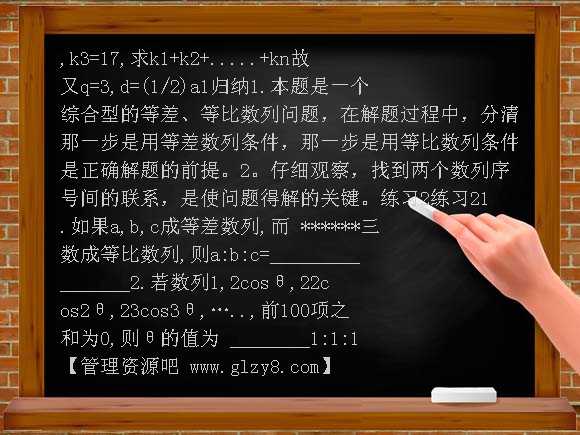 ,k3=17,求k1+k2+.....+kn故
又q=3,d=(1/2)a1归纳1.本题是一个
综合型的等差、等比数列问题，在解题过程中，分清
那一步是用等差数列条件，那一步是用等比数列条件
是正确解题的前提。2。仔细观察，找到两个数列序
号间的联系，是使问题得解的关键。练习2练习21
.如果a,b,c成等差数列,而 ******三
数成等比数列,则a:b:c=_________
_______2.若数列1,2cosθ,22c
os2θ,23cos3θ,…..,前100项之
和为0,则θ的值为 ________1:1:1
【管理资源吧 www.glzy8.com】